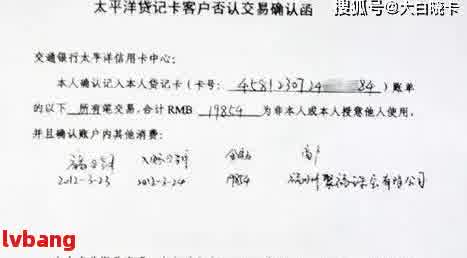 太平洋贷记卡客户否认交易确认函
搜狐号@大白晓卡
交通银行太平洋信用卡中心：
本人确认记入本人贷记卡（卡号：4581230724 84）账单
的以下 所有笔交易，合计 RMB 19854 为非本人或本人授意他人使用，
并且确认账户内其他消费：
金额 商户
2012-3-23 2012-3-24 19854 有限公司
lvbang